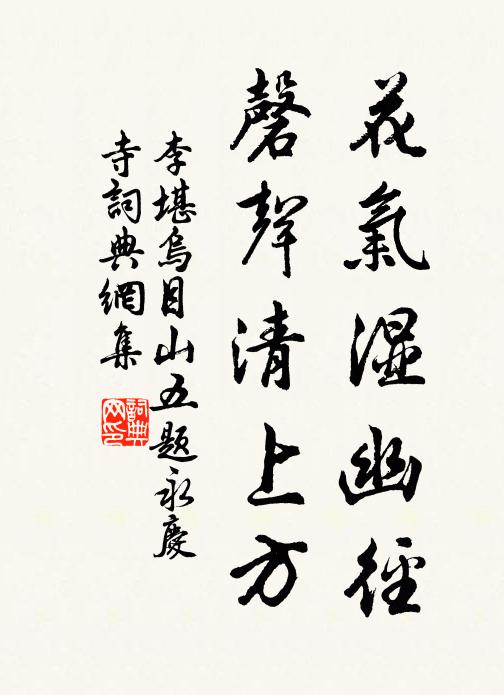 花氣濕幽徑
磬聲清上方
李堪烏目山五題永慶
寺詞典網集
詞典
网印